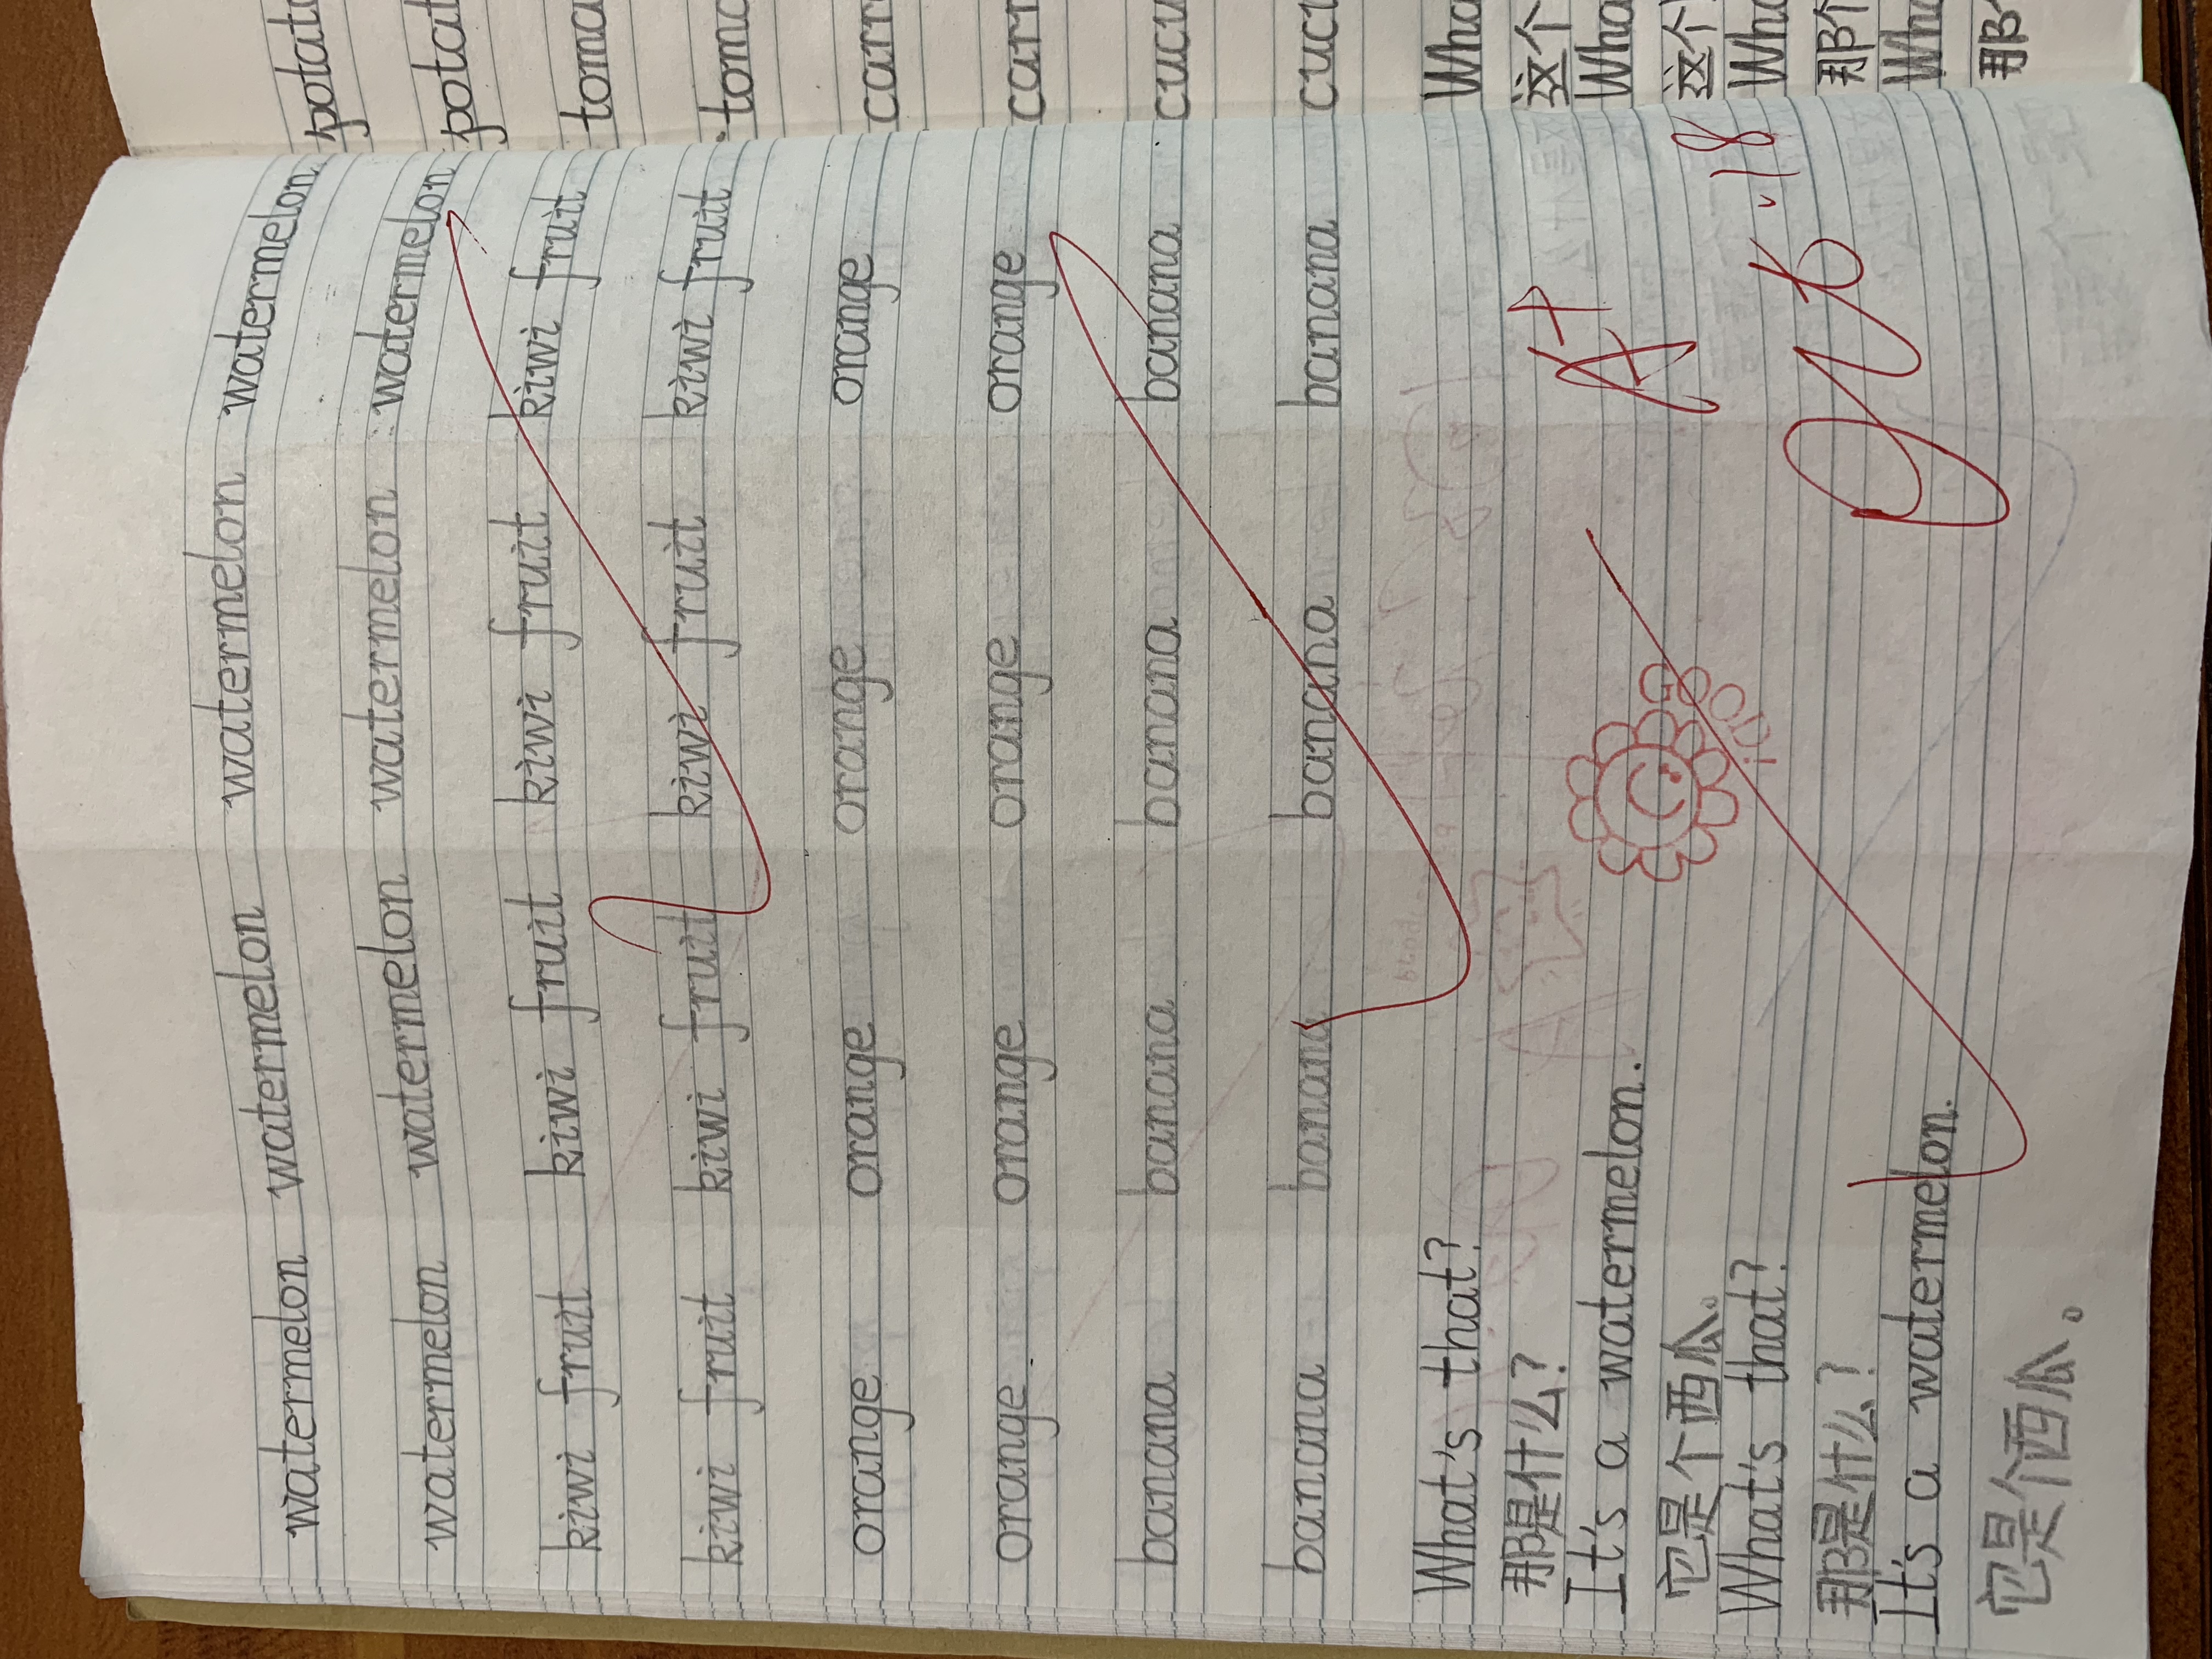 watermelon watermelon watermelon watermelon
watermelon watermelon watermelon watermelon
kiwi fruit kiwi fruit kiwi fruit kiwi fruit
kiwi fruit kiwi fruit kiwi fruit kiwi fruit
orange orange orange orange
orange orange orange orange
banana banana banana banana
banana banana banana banana
What's that?
那是什么?
It's a watermelon.
它是个西瓜。
What's that?
那是什么?
It's a watermelon.
它是个西瓜。
A+
GOOD!
potat
potat
toma
toma
carr
carr
cucu
cucu
Wha
这个
Wha
这个
Wha
那个
Wha
那